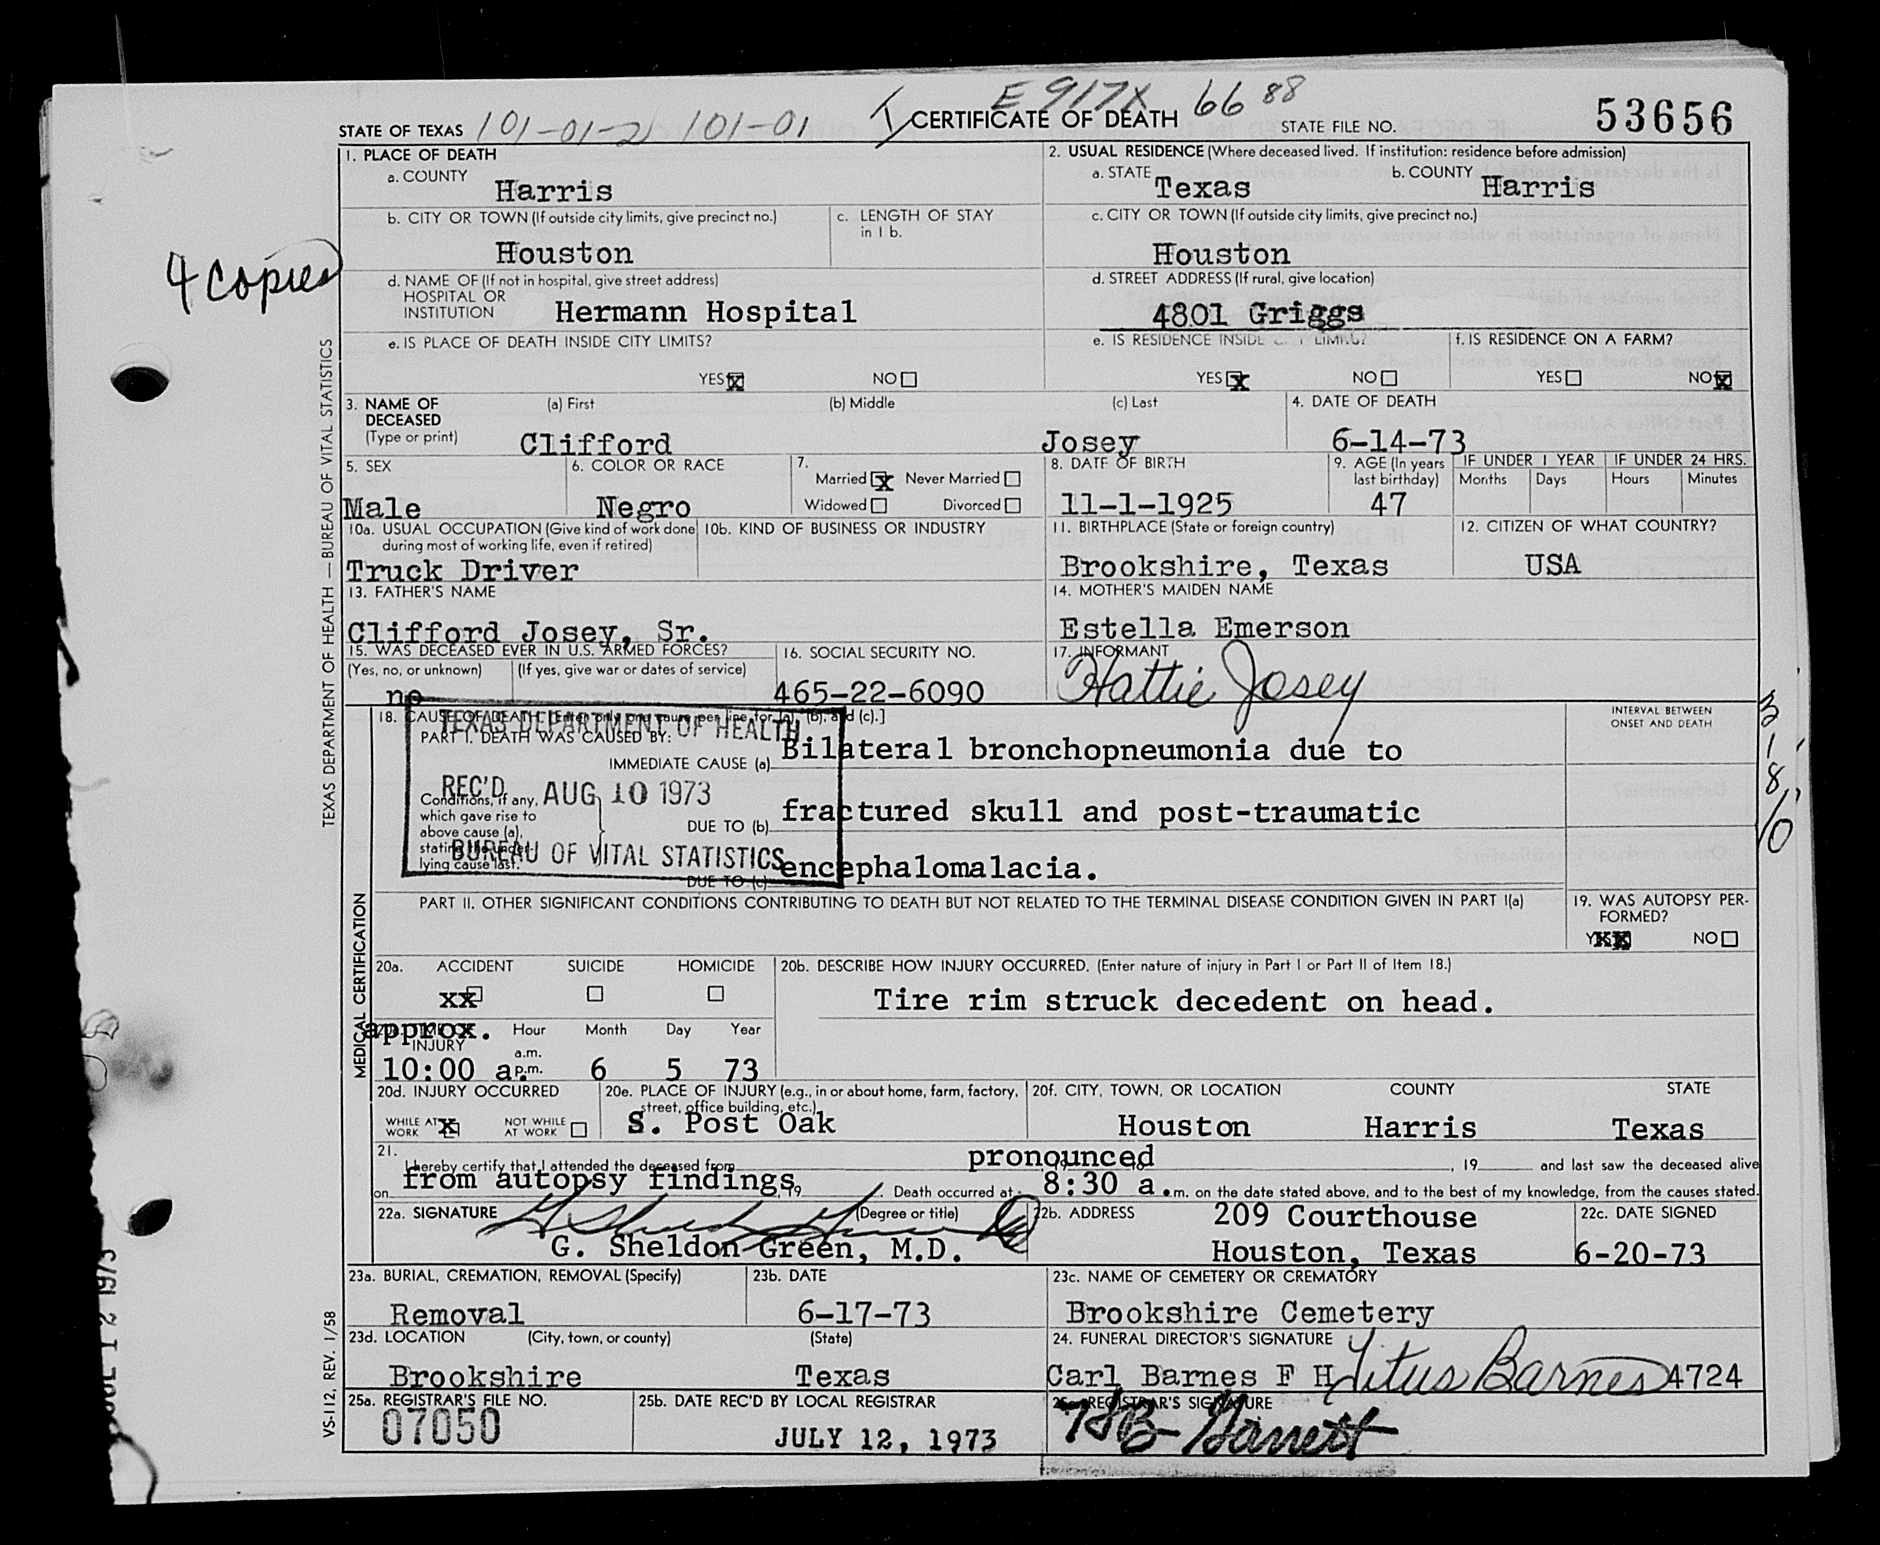 E 917X 66 88
STATE OF TEXAS 101-01-2 101-01 CERTIFICATE OF DEATH STATE FILE NO. 53656
4 copies
1. PLACE OF DEATH
a. COUNTY Harris
2. USUAL RESIDENCE (Where deceased lived. If institution: residence before admission)
a. STATE Texas b. COUNTY Harris
b. CITY OR TOWN (If outside city limits, give precinct no.)
Houston
c. LENGTH OF STAY
in 1 b.
c. CITY OR TOWN (If outside city limits, give precinct no.)
Houston
d. NAME OF (If not in hospital, give street address)
HOSPITAL OR
INSTITUTION Hermann Hospital
d. STREET ADDRESS (If rural, give location)
4801 Griggs
e. IS PLACE OF DEATH INSIDE CITY LIMITS?
YES X NO
e. IS RESIDENCE INSIDE LIMITS?
YES X NO
f. IS RESIDENCE ON A FARM?
YES NO X
3. NAME OF
DECEASED
(Type or print)
(a) First (b) Middle (c) Last
Clifford Josey
4. DATE OF DEATH
6-14-73
5. SEX
Male
6. COLOR OR RACE
Negro
7.
Married X Never Married
Widowed Divorced
8. DATE OF BIRTH
11-1-1925
9. AGE (In years
last birthday)
47
IF UNDER 1 YEAR
Months Days
IF UNDER 24 HRS.
Hours Minutes
10a. USUAL OCCUPATION (Give kind of work done
during most of working life, even if retired)
Truck Driver
10b. KIND OF BUSINESS OR INDUSTRY
11. BIRTHPLACE (State or foreign country)
Brookshire, Texas
12. CITIZEN OF WHAT COUNTRY?
USA
13. FATHER'S NAME
Clifford Josey, Sr.
14. MOTHER'S MAIDEN NAME
Estella Emerson
15. WAS DECEASED EVER IN U.S. ARMED FORCES?
(Yes, no, or unknown) (If yes, give war or dates of service)
no
16. SOCIAL SECURITY NO.
465-22-6090
17. INFORMANT
Hattie Josey
18. CAUSE OF DEATH [Enter only one cause per line for (a), (b), and (c).]
PART I. DEATH WAS CAUSED BY:
IMMEDIATE CAUSE (a) Bilateral bronchopneumonia due to
Conditions, if any,
which gave rise to
above cause (a),
stating the under-
lying cause last.
DUE TO (b) fractured skull and post-traumatic
DUE TO (c) encephalomalacia.
INTERVAL BETWEEN
ONSET AND DEATH
TEXAS DEPARTMENT OF HEALTH
REC'D AUG 10 1973
BUREAU OF VITAL STATISTICS
3
1
8
10
PART II. OTHER SIGNIFICANT CONDITIONS CONTRIBUTING TO DEATH BUT NOT RELATED TO THE TERMINAL DISEASE CONDITION GIVEN IN PART I(a)
19. WAS AUTOPSY PER-
FORMED?
YES XX NO
20a. ACCIDENT SUICIDE HOMICIDE
xx
20b. DESCRIBE HOW INJURY OCCURRED. (Enter nature of injury in Part I or Part II of Item 18.)
Tire rim struck decedent on head.
20c. TIME OF
INJURY
Hour Month Day Year
approx.
a.m.
p.m.
10:00 a. 6 5 73
20d. INJURY OCCURRED
WHILE AT
WORK X NOT WHILE
AT WORK
20e. PLACE OF INJURY (e.g., in or about home, farm, factory,
street, office building, etc.)
S. Post Oak
20f. CITY, TOWN, OR LOCATION COUNTY STATE
Houston Harris Texas
21.
I hereby certify that I attended the deceased from pronounced , 19 and last saw the deceased alive
on from autopsy findings, 19 . Death occurred at 8:30 a.m. on the date stated above, and to the best of my knowledge, from the causes stated.
22a. SIGNATURE (Degree or title)
G. Sheldon Green, M.D.
22b. ADDRESS 209 Courthouse
Houston, Texas
22c. DATE SIGNED
6-20-73
23a. BURIAL, CREMATION, REMOVAL (Specify)
Removal
23b. DATE
6-17-73
23c. NAME OF CEMETERY OR CREMATORY
Brookshire Cemetery
23d. LOCATION (City, town, or county) (State)
Brookshire Texas
24. FUNERAL DIRECTOR'S SIGNATURE
Carl Barnes F H Titus Barnes 4724
25a. REGISTRAR'S FILE NO.
07050
25b. DATE REC'D BY LOCAL REGISTRAR
JULY 12, 1973
25c. REGISTRAR'S SIGNATURE
HB Garrett
TEXAS DEPARTMENT OF HEALTH — BUREAU OF VITAL STATISTICS
MEDICAL CERTIFICATION
VS-112, REV. 1/58